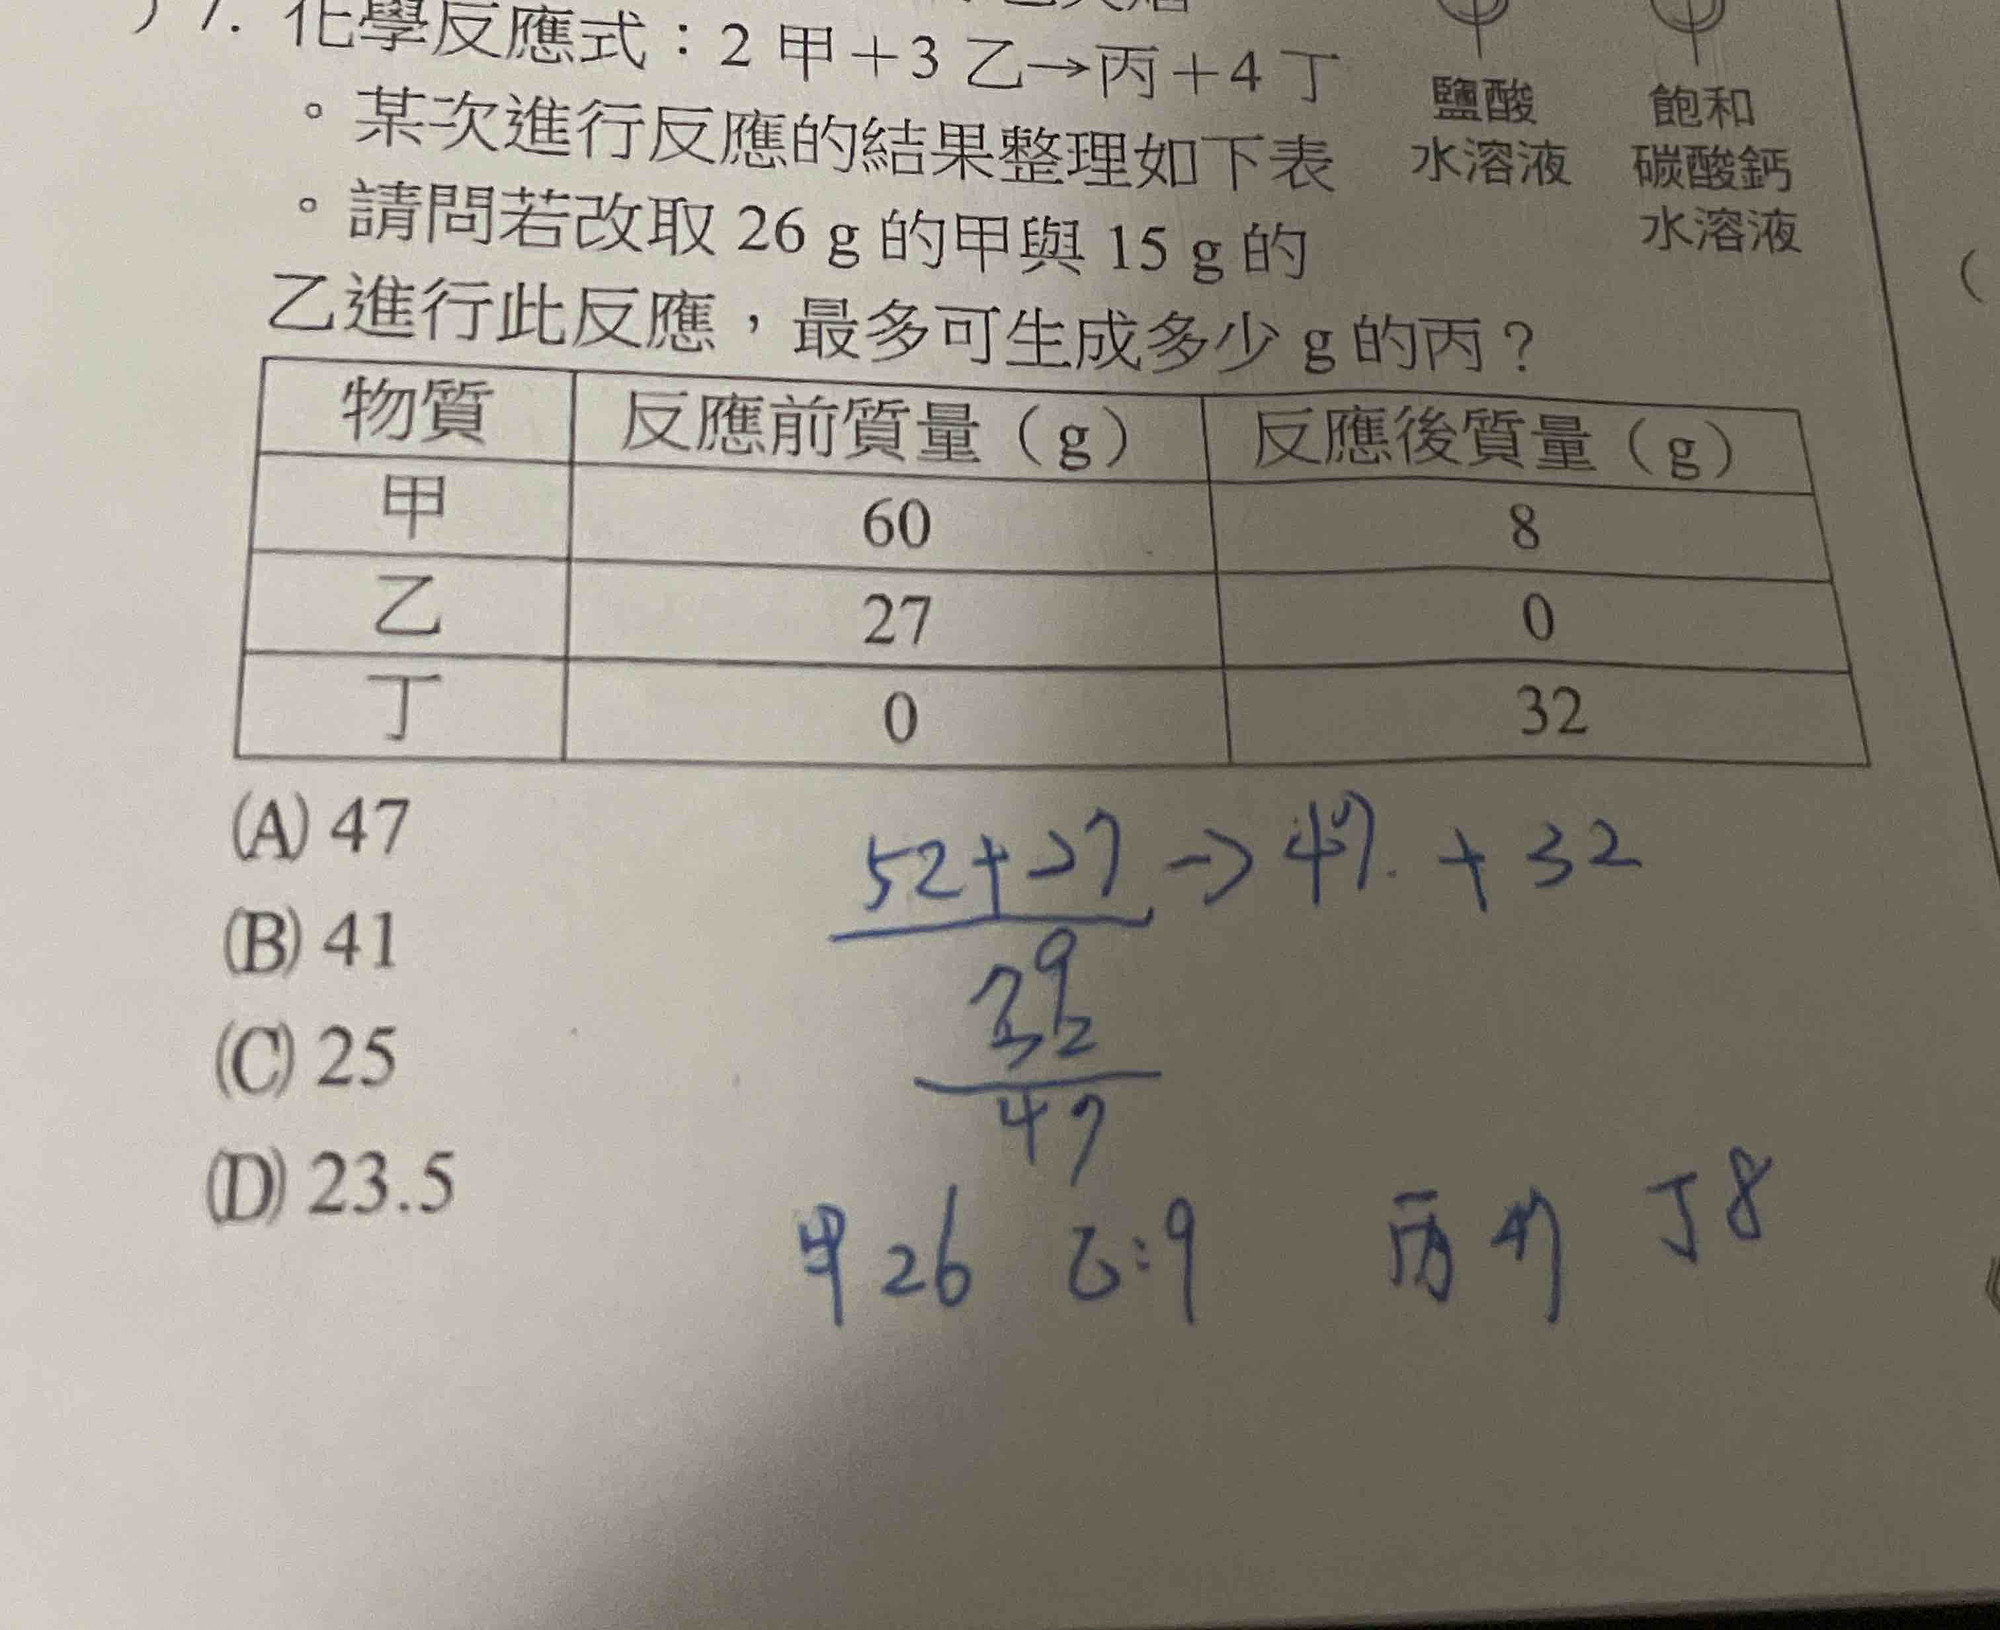 7. 化學反應式：2 甲＋3 乙→丙＋4 丁
。某次進行反應的結果整理如下表
。請問若改取 26 g 的甲與 15 g 的
乙進行此反應，最多可生成多少 g 的丙？
鹽酸
水溶液
飽和
碳酸鈣
水溶液
物質 反應前質量（g） 反應後質量（g）
甲 60 8
乙 27 0
丁 0 32
(A) 47
(B) 41
(C) 25
(D) 23.5
52+27→47.+32
79
32
47
甲26 乙:9 丙47 丁8